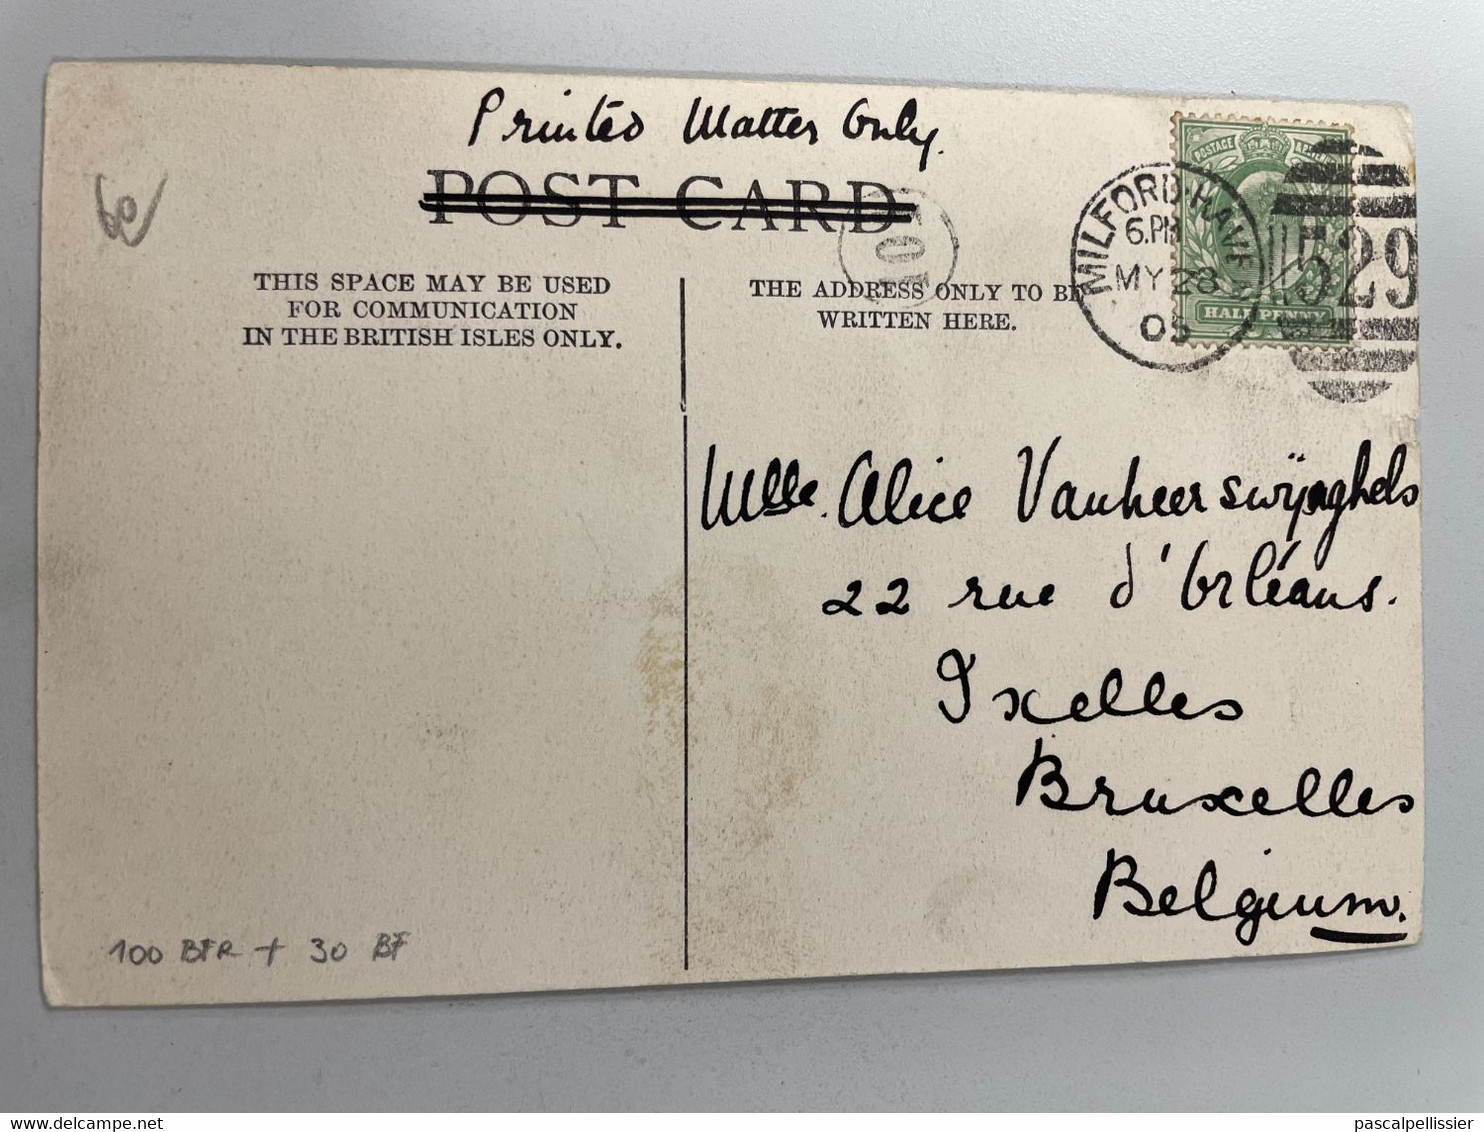 Printed Matter Only.
POST CARD
60
THIS SPACE MAY BE USED
FOR COMMUNICATION
IN THE BRITISH ISLES ONLY.
THE ADDRESS ONLY TO BE
WRITTEN HERE.
MILFORD-HAVEN
6.PM
MY 28
05
529
POSTAGE
HALFPENNY
Mlle. Alice Vanheerswÿnghels
22 rue d'Orléans.
Ixelles
Bruxelles
Belgium.
100 BFR + 30 BF
delcampe.net
pascalpellissier